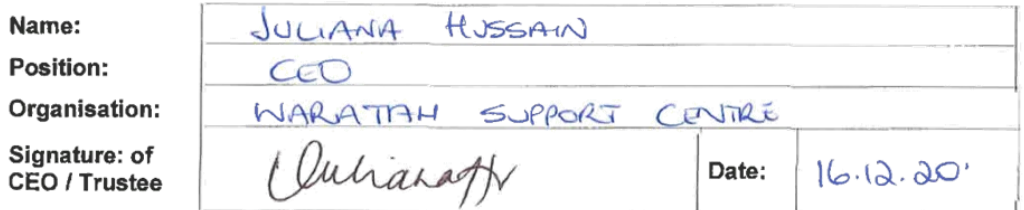 Name: JULIANA HUSSAIN
Position: CEO
Organisation: WARATAH SUPPORT CENTRE
Signature: of
CEO / Trustee
Date: 16.12.20